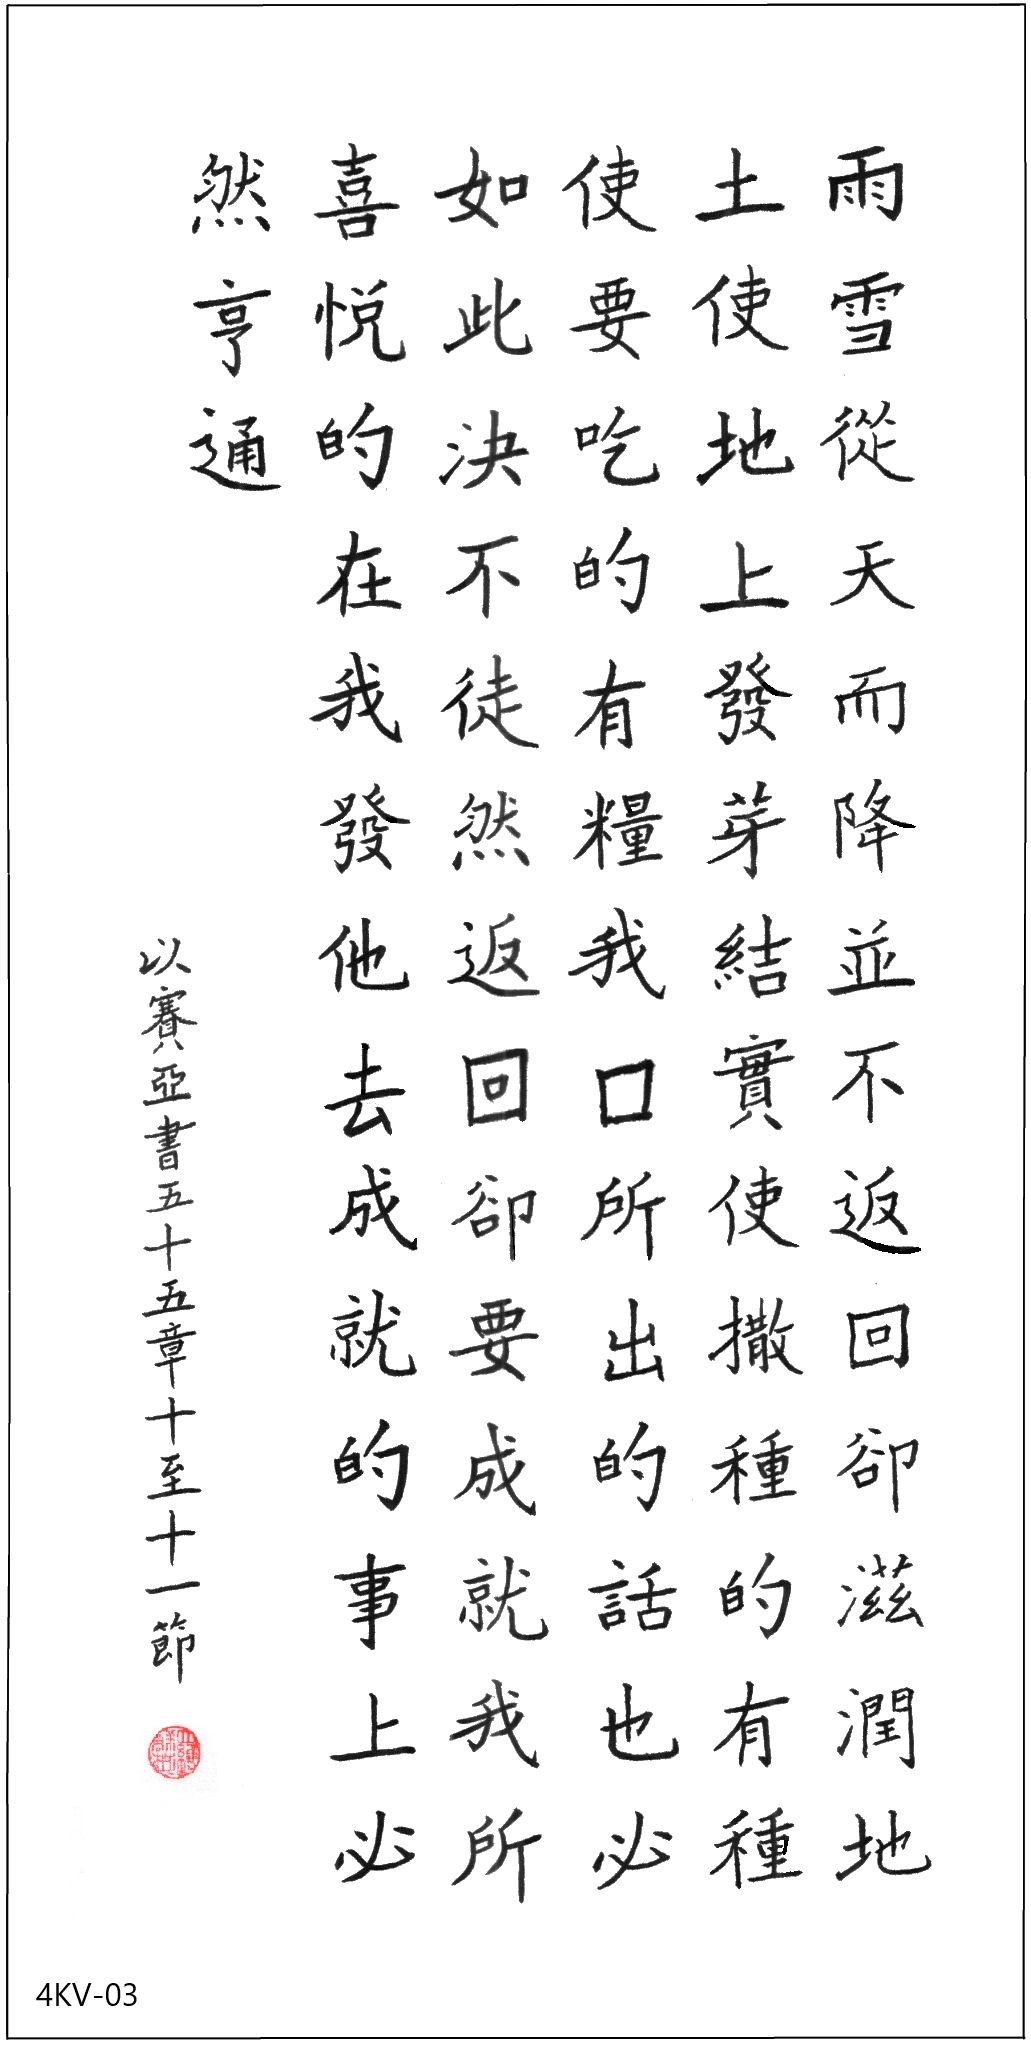 雨雪從天而降並不返回卻滋潤地
土使地上發芽結實使撒種的有種
使要吃的有糧我口所出的話也必
如此決不徒然返回卻要成就我所
喜悅的在我發他去成就的事上必
然亨通
以賽亞書五十五章十至十一節
4KV-03